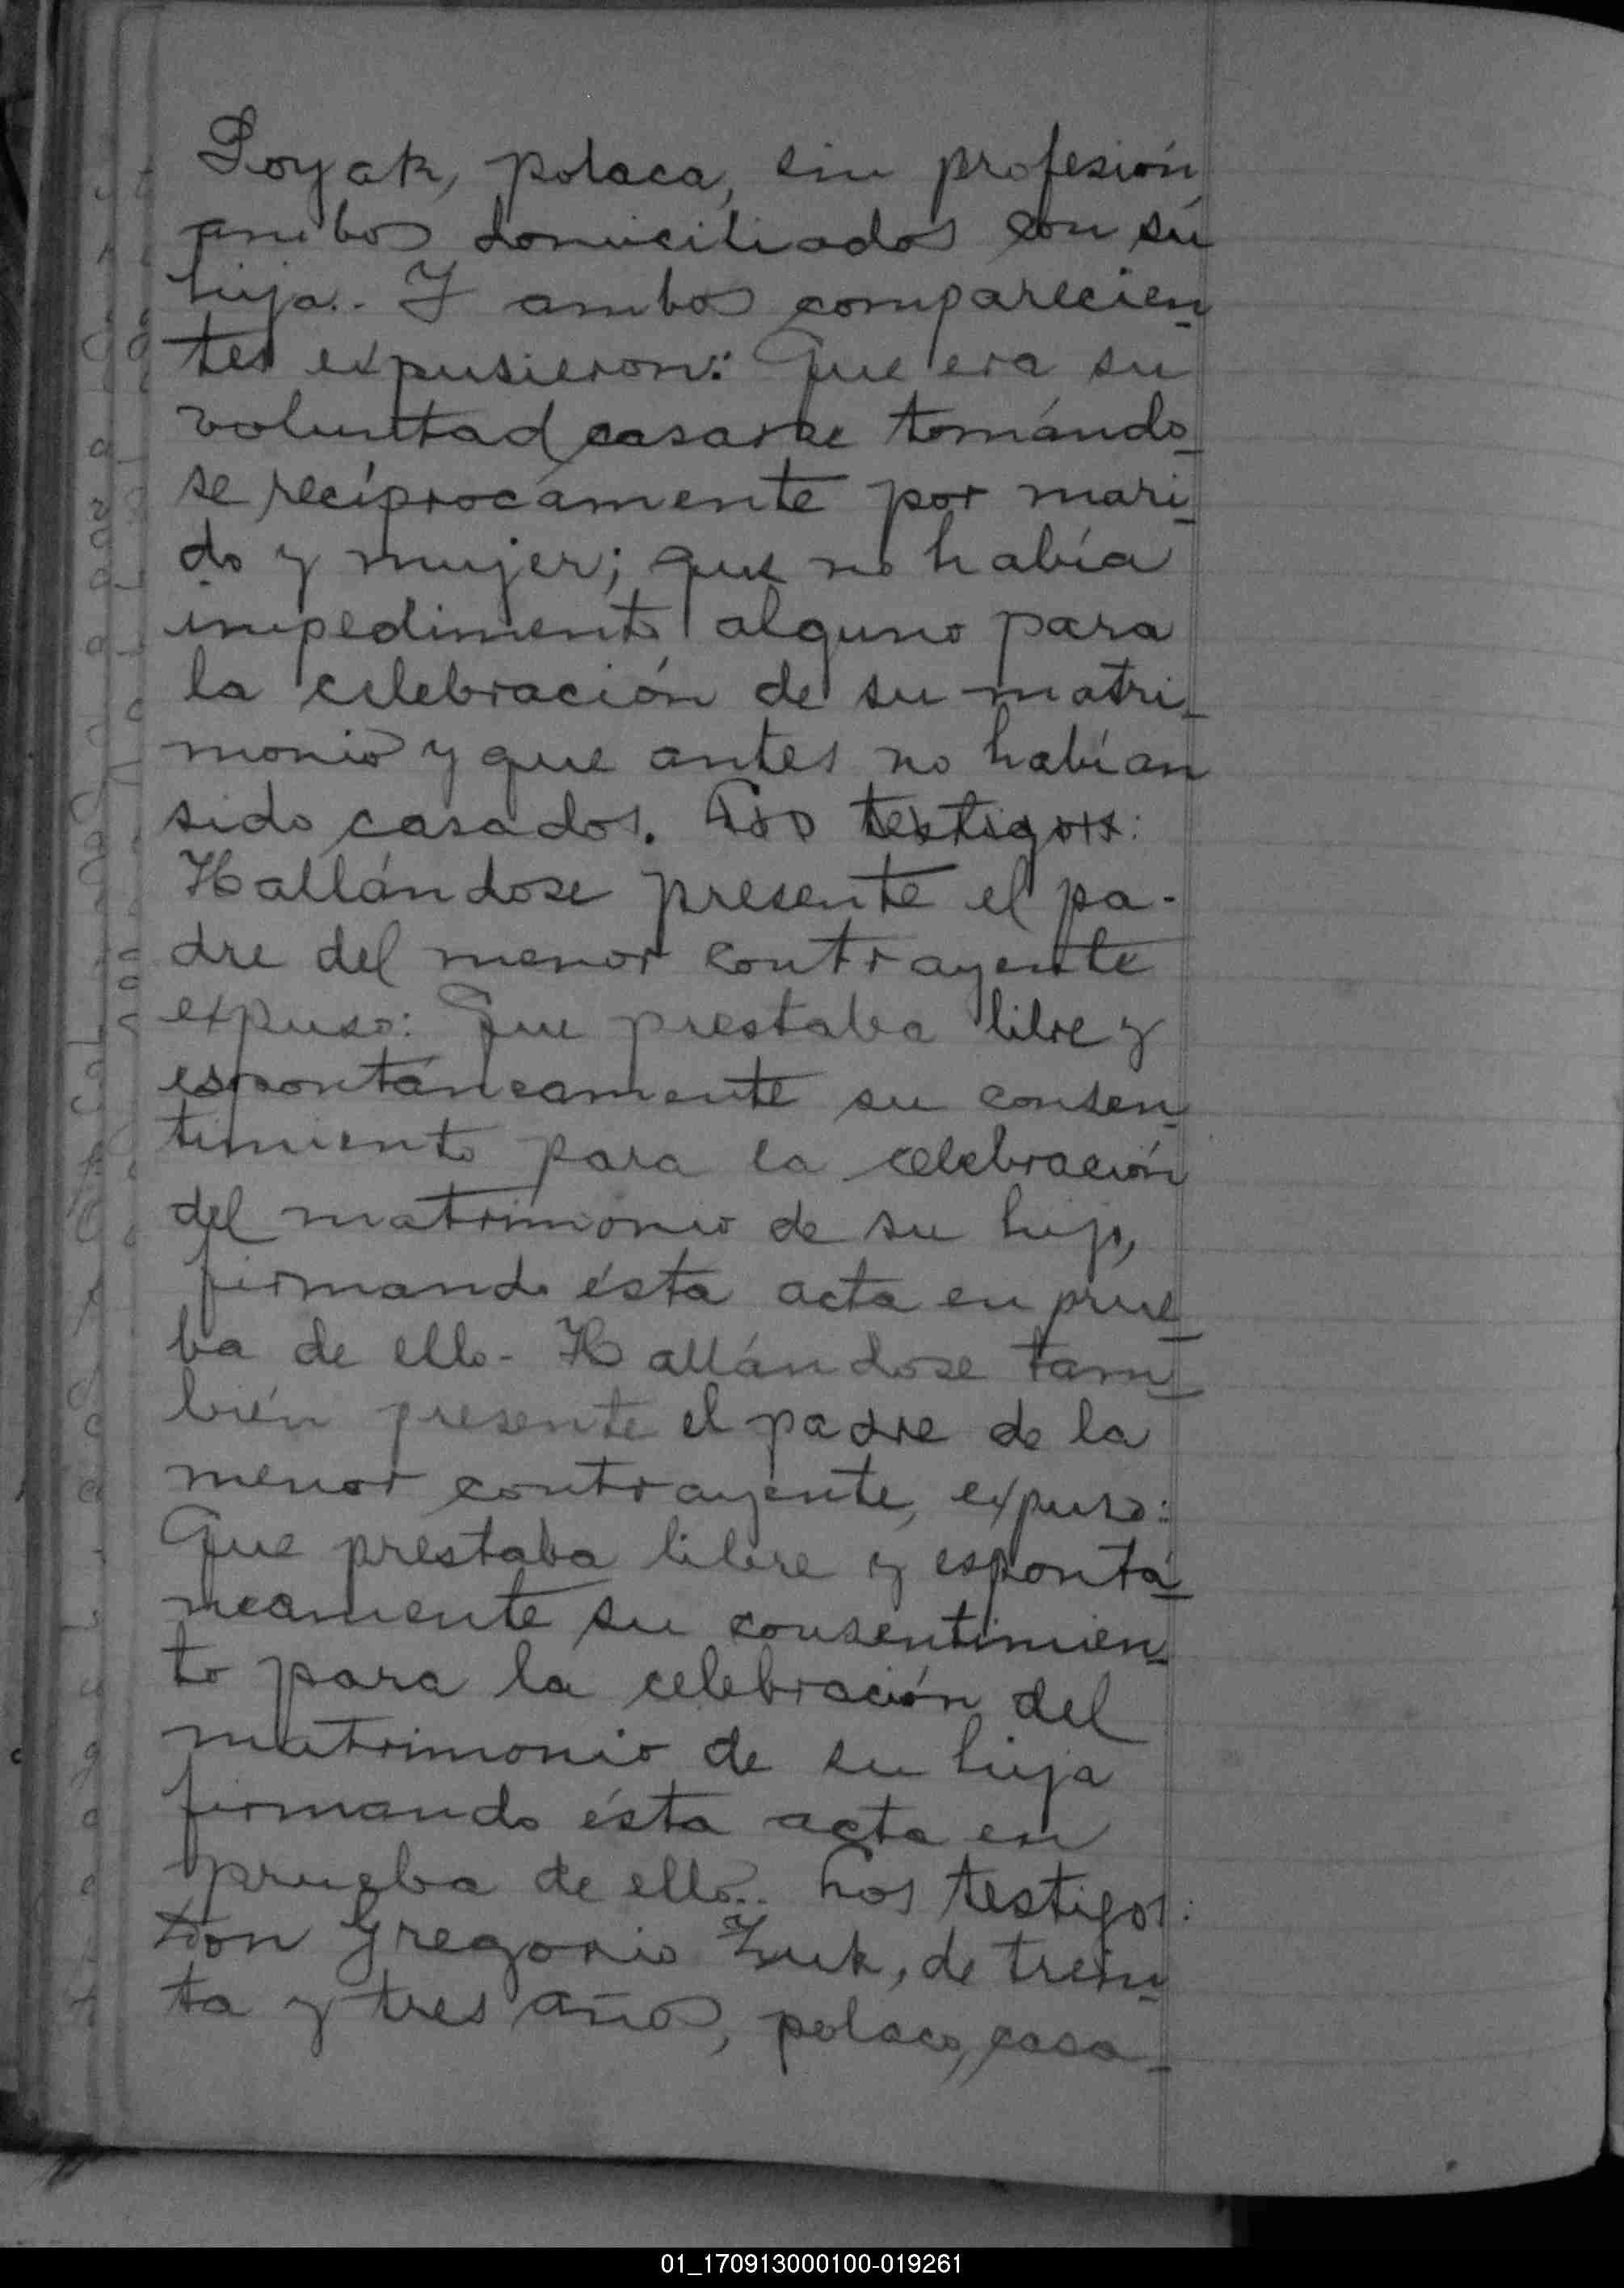 Soyak, polaca, sin profesión
ambos domiciliados con su
hija.- Y ambos comparecien_
tes expusieron: Que era su
voluntad casarse tomándo_
se recíprocamente por mari_
do y mujer; que no había
impedimento alguno para
la celebración de su matri_
monio y que antes no habían
sido casados. Los testigos:
Hallándose presente el pa-
dre del menor contrayente
expuso: Que prestaba libre y
espontáneamente su consen_
timiento para la celebración
del matrimonio de su hijo,
firmando ésta acta en prue_
ba de ello- Hallándose tam_
bién presente el padre de la
menor contrayente, expuso:
Que prestaba libre y espontá_
neamente su consentimien_
to para la celebración del
matrimonio de su hija
firmando ésta acta en
prueba de ello.. Los testigos:
Don Gregorio Zuk, de trein_
ta y tres años, polaco, casa_
01_170913000100-019261